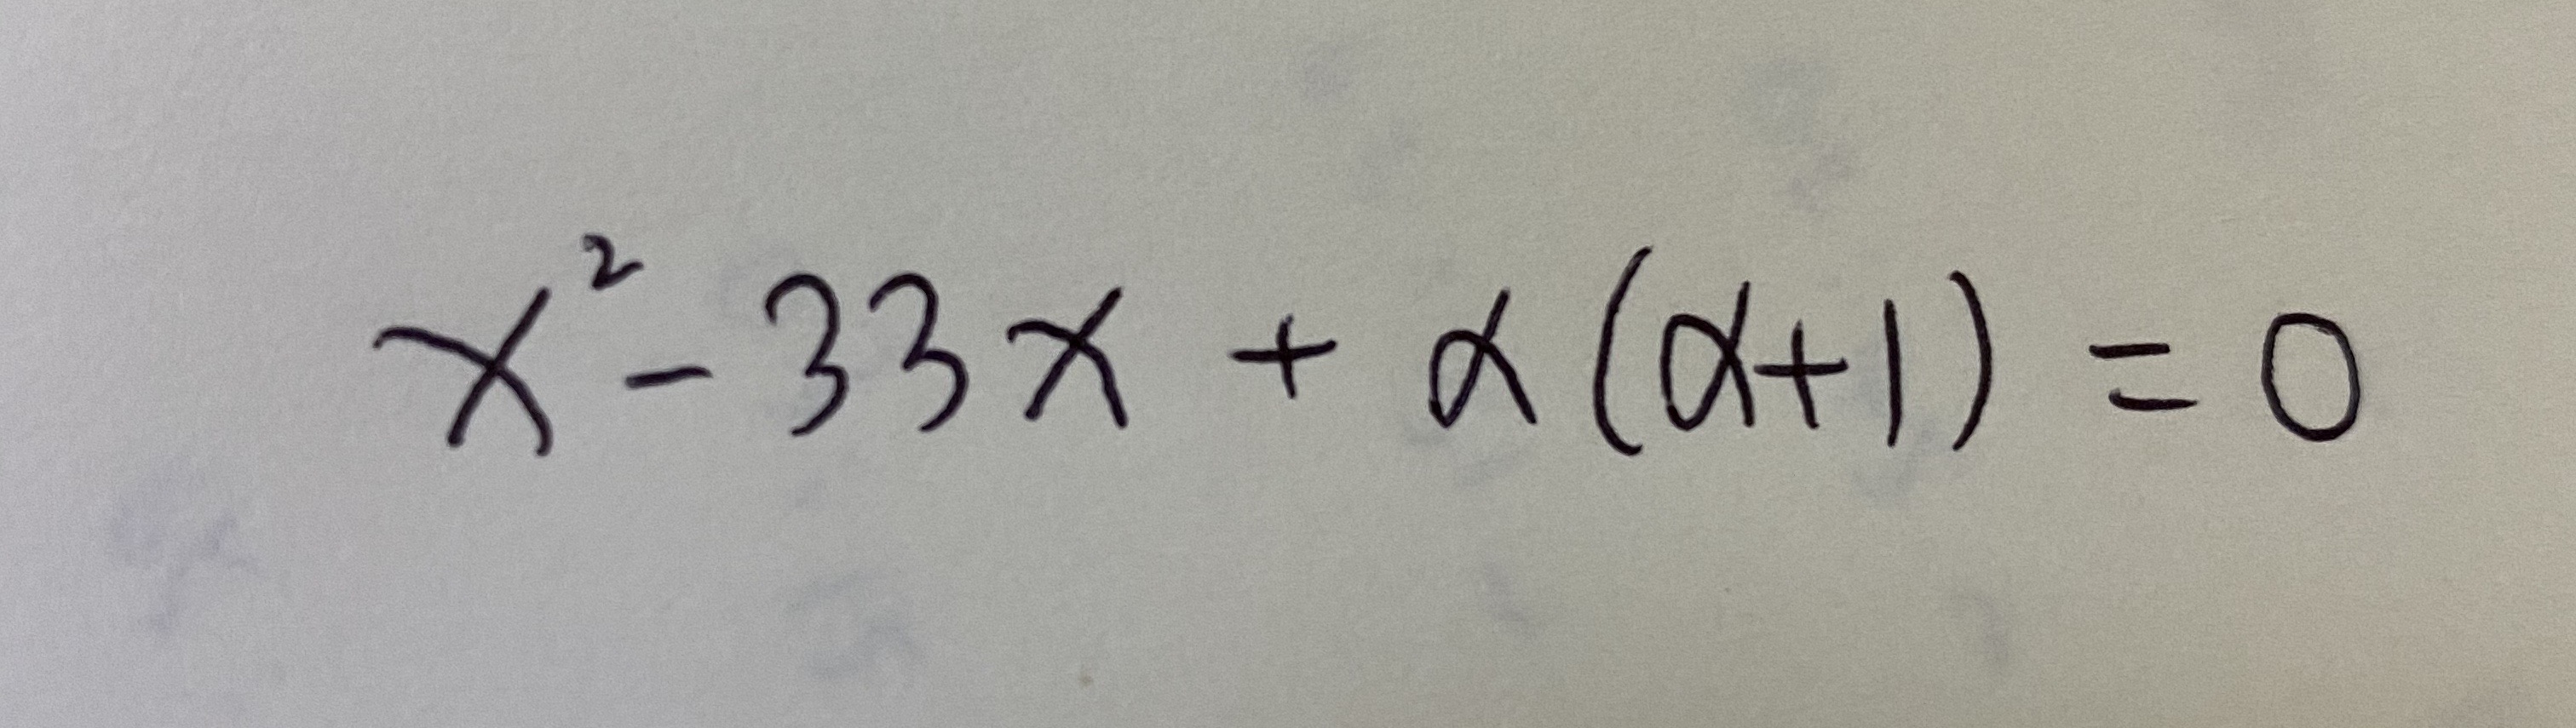 x² - 33x + α(α+1) = 0